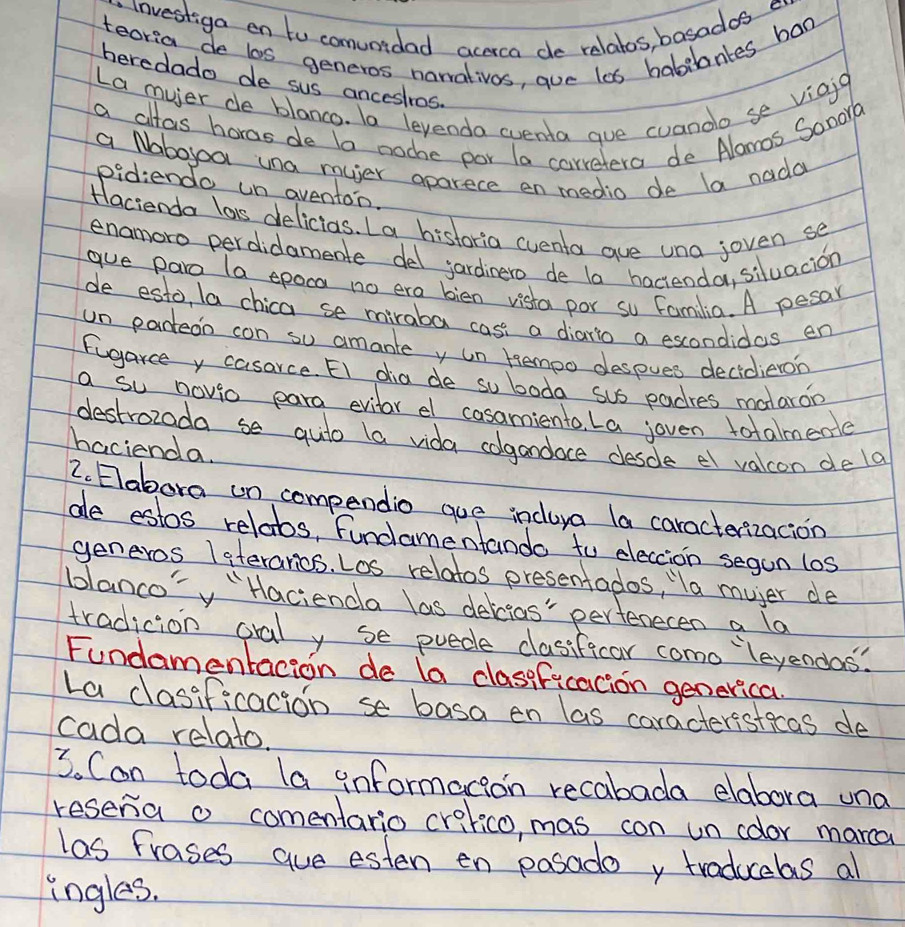 1. Investiga en tu comunidad acerca de relatos, basados en
teoria de los generos narrativos, que los habitantes han
heredado de sus ancestros.
La mujer de blanco. la leyenda cuenta que cuando se viaja
a altas horas de la noche por la carretera de Alamos Sonora
a Nabojoa una mujer aparece en medio de la nada
pidiendo un aventón.
Hacienda las delicias. La historia cuenta que una joven se
enamoro perdidamente del jardinero de la hacienda, situación
que para la epoca no era bien vista por su familia. A pesar
de esto, la chica se miraba casi a diario a escondidas en
un panteón con su amante y un tiempo despues decidierón
fugarce y casarce. El dia de su boda sus padres matarón
a su novio para evitar el casamiento. La joven totalmente
destrozada se quito la vida colgandoce desde el valcon de la
hacienda.
2. Elabora un compendio que incluya la caracterización
de estos relatos, fundamentando tu elección segun los
generos literarios. Los relatos presentados, "la mujer de
blanco" y "Hacienda las delicias" pertenecen a la
tradición oral y se puede clasificar como "leyendas".
Fundamentación de la clasificación generica.
La clasificación se basa en las caracteristicas de
cada relato.
3. Con toda la información recabada elabora una
reseña o comentario critico, mas con un color marca
las frases que esten en pasado y traducelas al
ingles.